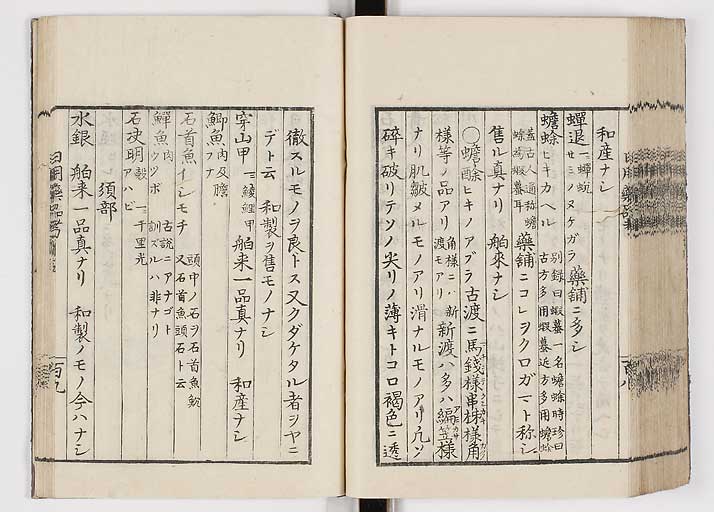 和産ナシ
蟬退 一ニ蟬蛻 セミノヌケガラ 薬舗ニ多シ
蟾蜍 ヒキカヘル 別録曰蝦蟇一名蟾蜍時珍曰 古方多用蝦蟇近方多用蟾蜍
蓋古人通称蟾 蜍為蝦蟇耳 薬舗ニコレヲクロガマト称シ
售ル真ナリ 舶來ナシ
〇蟾酥 ヒキノアブラ 古渡ニ馬錢様串柹様角
様等ノ品アリ 角様ニハ新 渡モアリ 新渡ハ多ハ編笠様
ナリ肌皺メルモノアリ滑ナルモノアリ凡ソ
碎キ破リテソノ尖リノ薄キトコロ褐色ニ透
徹スルモノヲ良トス又クダケタル者ヲヤニ
デト云 和製ヲ售モノナシ
穿山甲 一ニ鯪鯉甲 舶来一品真ナリ 和産ナシ
鯽魚 肉及膽 フナ
石首魚 イシモチ 頭中ノ石ヲ石首魚魫 又石首魚頭石ト云
鱓魚 肉 ウツボ 古説ニアナゴト 訓ズルハ非ナリ
石决明 殻 アハビ 一ニ千里光
須部
水銀 舶来一品真ナリ 和製ノモノ今ハナシ
百九